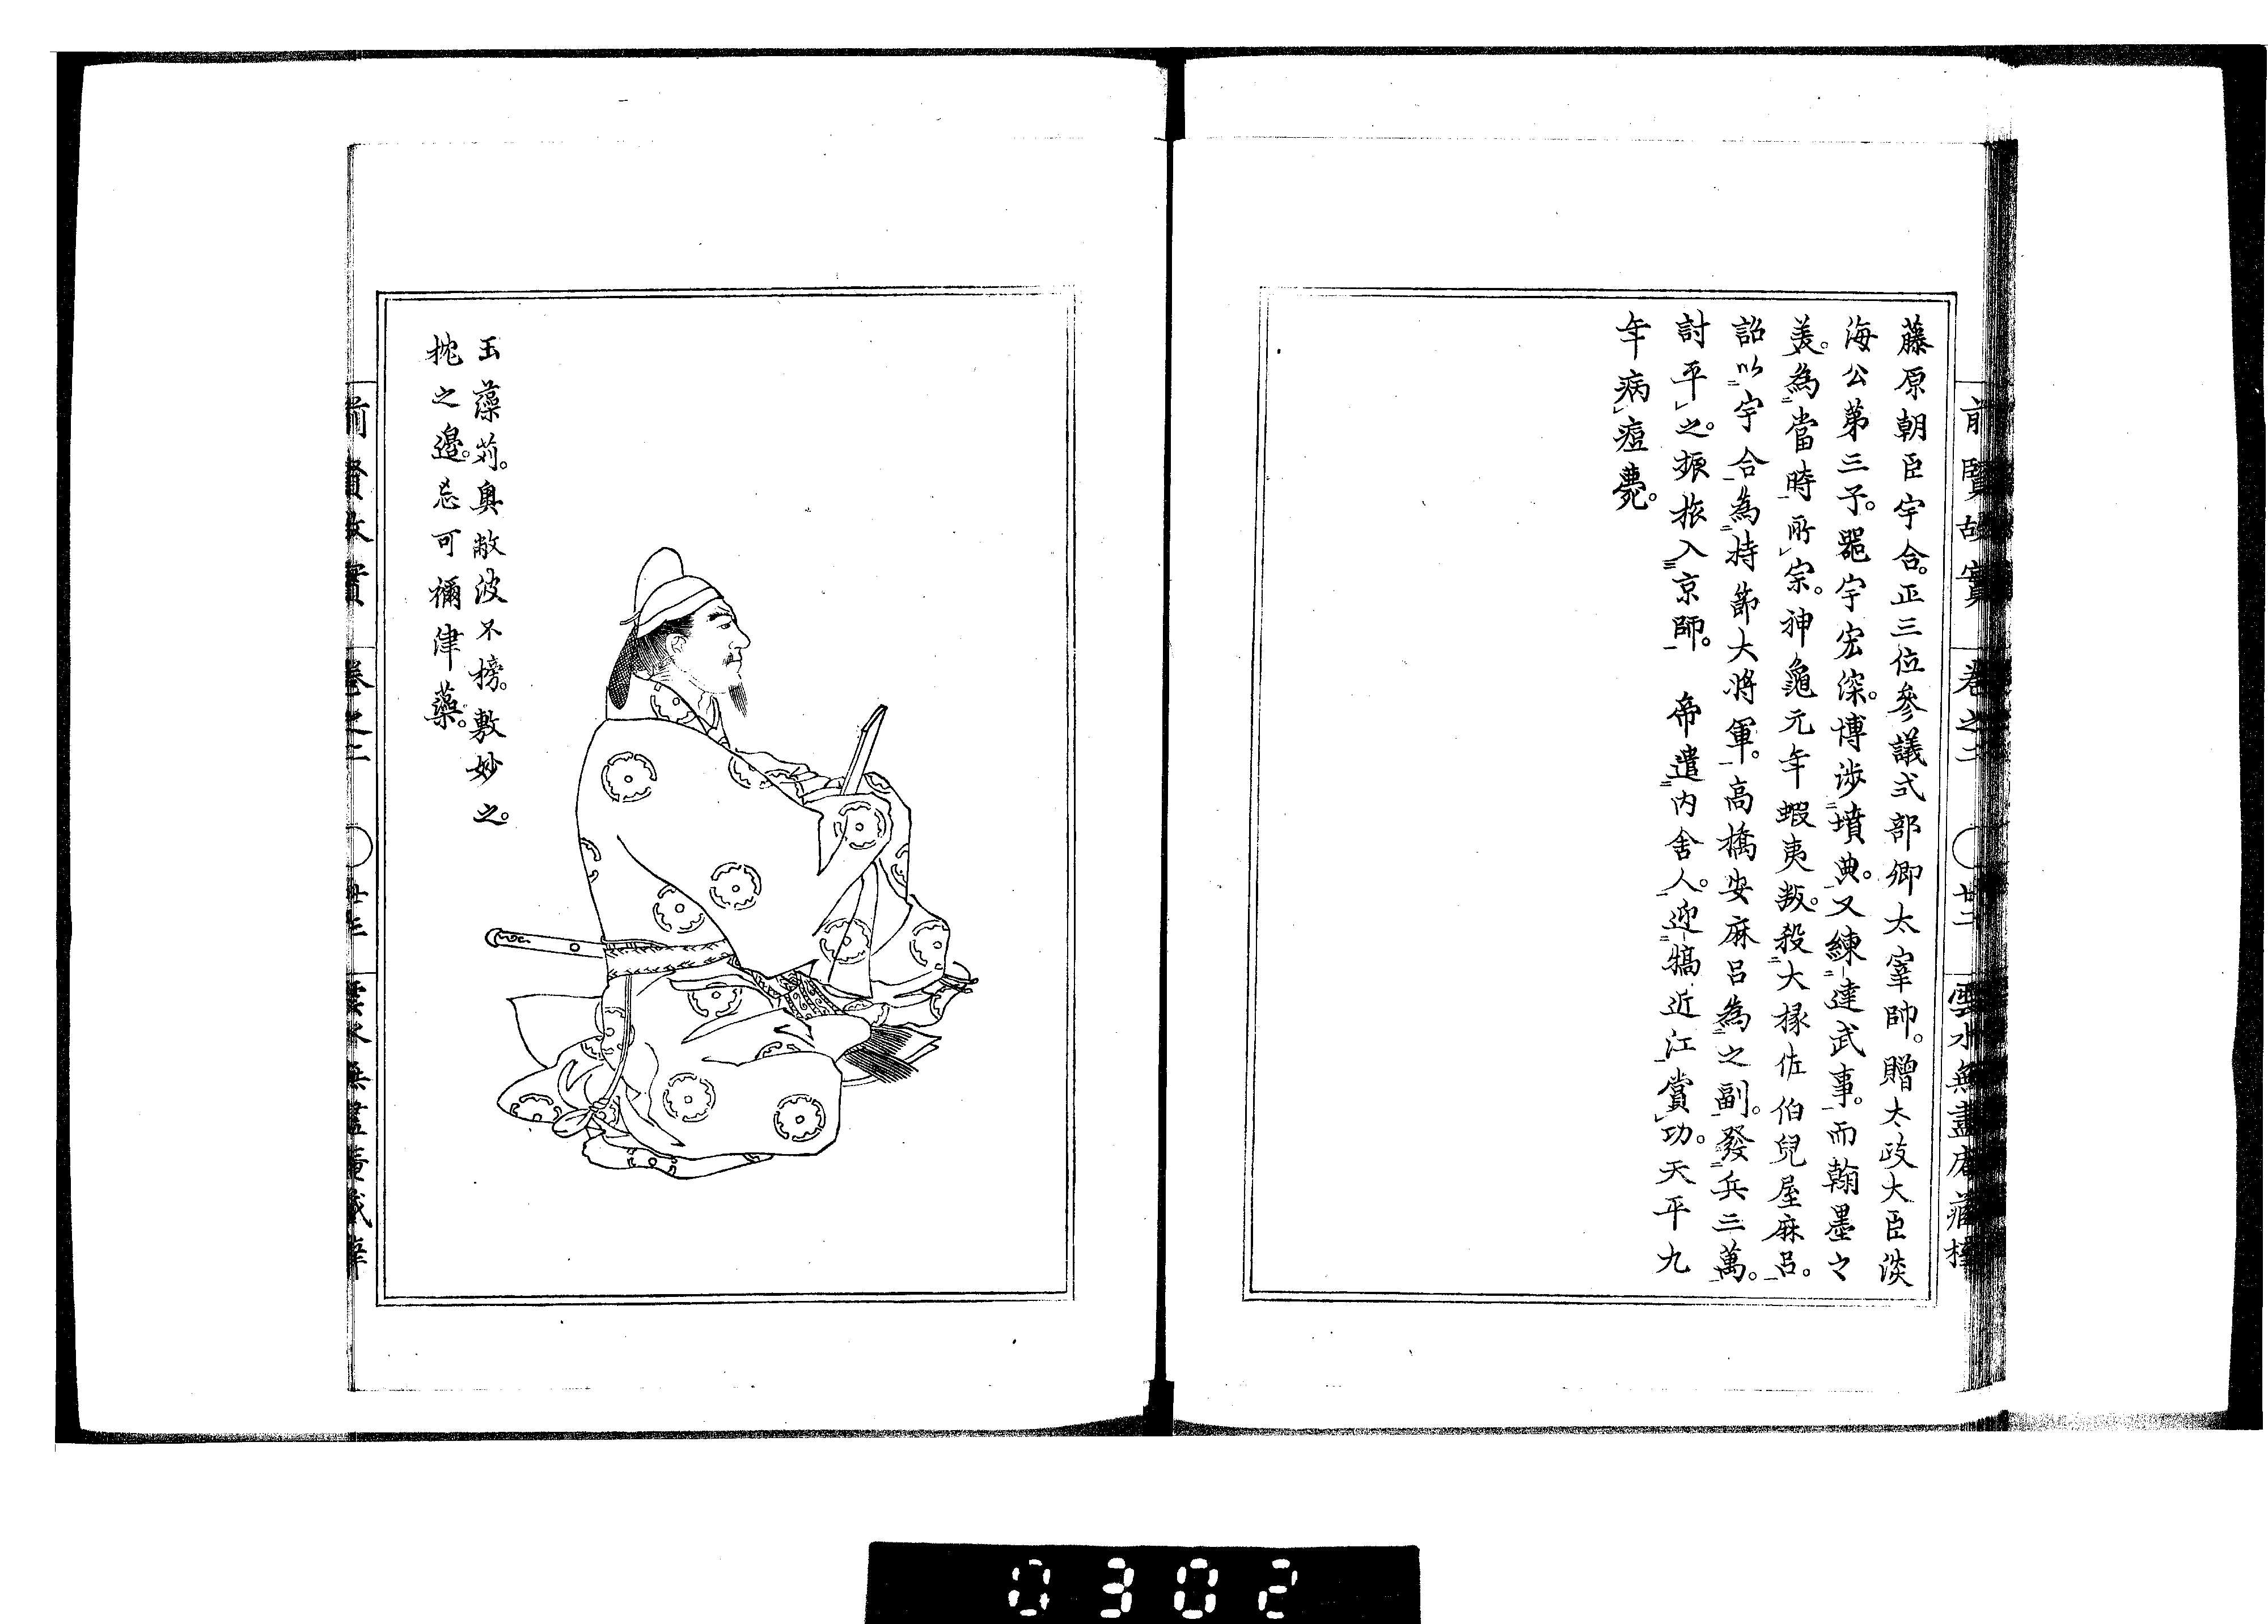 前賢故實 卷之二 ○ 廿二 雲水無盡庵藏
藤原朝臣宇合。正三位參議式部卿太宰帥。贈太政大臣淡
海公第三子。器宇宏深。博涉墳典。又練達武事。而翰墨之
美。為當時所宗。神龜元年蝦夷叛。殺大掾佐伯兒屋麻呂。
詔以宇合為持節大將軍。高橋安麻呂為之副。發兵三萬。
討平之。振旅入京師。 帝遣内舍人。迎犒近江賞功。天平九
年病痘薨。
玉藻苅。奥敝波不榜。敷妙之。
枕之邊。忘可禰津藻。
前賢故實 卷之二 ○
0302